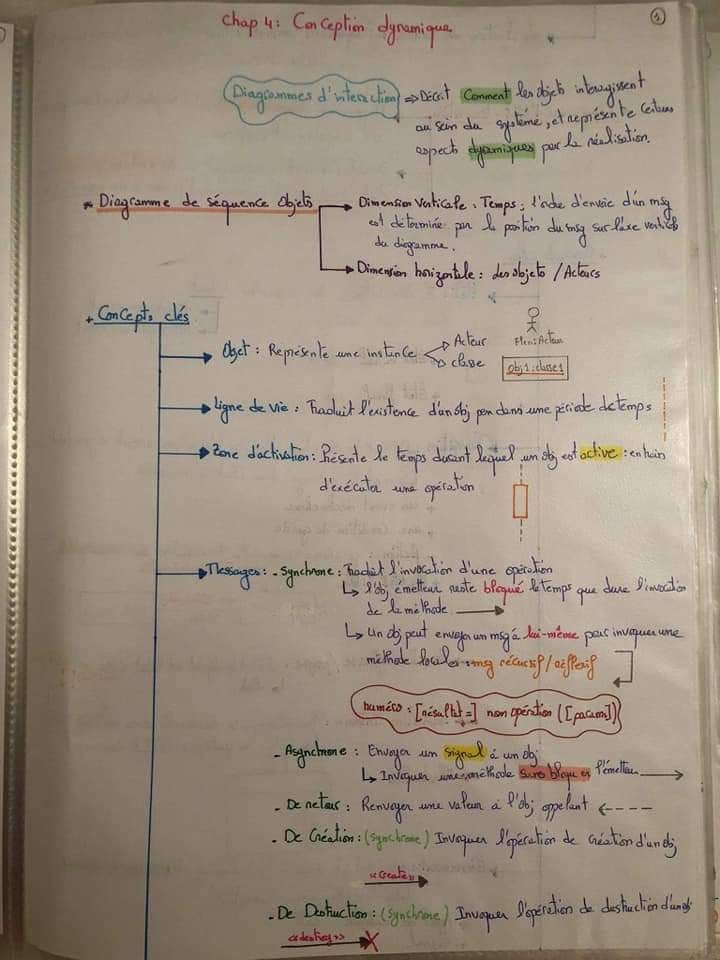 Chap 4: Conception dynamique
1
Diagrammes d'interaction => Décrit Comment les objets interagissent
au sein du système, et représente certains
aspects dynamiques par la réalisation.
* Diagramme de séquence Objets
Dimension Verticale : Temps : l'ordre d'envoie d'un msg
est détermine par la position du msg sur l'axe vertical
du diagramme.
Dimension horizontale : des objets / Acteurs
+ Concepts clés
Objet : Représente une instance
Acteur
classe
:Acteur
obj1:classe1
Ligne de vie : Traduit l'existence d'un obj pendans une période de temps
Zone d'activation : Présente le temps durant lequel un obj est active : en train
d'exécuter une opération
Messages : - Synchrone : Traduit l'invocation d'une opération
↳ l'obj émetteur reste bloqué le temps que dure l'invocation
de la méthode
↳ Un obj peut envoyer un msg à lui-même par invoquer une
méthode locale : msg récursif / réflexif
numéro : [résultat =] nom opération ([params])
- Asynchrone : Envoyer un signal à un obj
↳ Invoquer une méthode sans bloquer l'émetteur
- De retour : Renvoyer une valeur à l'obj appelant
- De Création : (synchrone) Invoquer l'opération de création d'un obj
«Create»
- De Destruction : (synchrone) Invoquer l'opération de destruction d'un obj
«destroy»